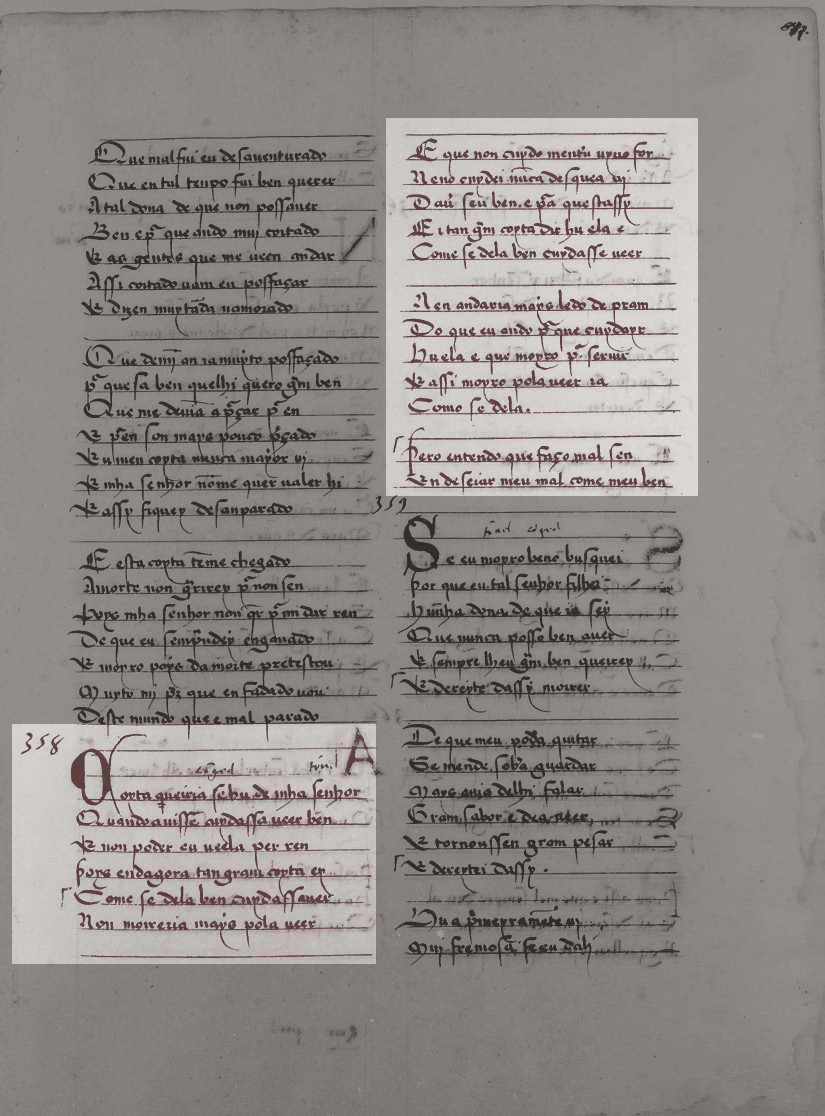 Que mal fui eu desauenturado
Que en tal tenpo fui ben querer
Atal dona de que non possauer
Ben e p̃ que ando mui coitado
E as gentes que me ueen andar
Assi coitado uam en possaçar
E dizen muyt namorado
Que demj an ia muyto possaçado
p̃ que sa ben quelhi quero gm̃ ben
Que me deuiã a p̃çar p̃ en
E pẽn son mays pouco p̃çado
E u men coyta nunca mayor ui
E mha senhor nõme quer ualer hi
E assy fiquey desanparado
E esta coyta tẽme chegado
Amorte non p̃ non sen
Poys mha senhor non qr̃ p̃ mi dar ren
De que eu senpr andey enganado
E moyro poys da morte
Muyto mi que en fadado uou
Deste mundo que e mal parado
358
A
Coyta queiria se hu de mha senhor
Quando auisse andassa ueer ben
E non poder eu ueela per ren
Poys endagora tan gram coyta ey
Come se dela ben cuydassauer
Non morreria mays pola ueer
E que non cuydo mentru uyuo for
Neno cuydei nũca desquea ui
Dauer seu ben e p̃a que stassy
Ei tan gm̃ coyta dir hu ela e
Come se dela ben cuydasse ueer
Nen andaria mays ledo de pram
Do que eu ando p̃ que cuydayr
Hu ela e que moyro p̃ seruir
E assi moyro pola ueer ia
Como se dela.
Pero entendo que faço mal sen
En deseiar meu mal come meu ben
359
Se eu moyro beno busquei
Por que eu tal senhor filhei
Hunha dona de que ia sey
Que nunca possẽ ben auer
E sempre lheu gm̃ ben querrey
E dereyte dassy moirer
De que meu podia quitar
Se mende soba guardar
Mays ania delhi falar
Gram sabor e dea ueer
E tornoussen gram pesar
E dereytei dassy.
Hu a pm̃eyramẽte ui
Muj fremosa se eu dali